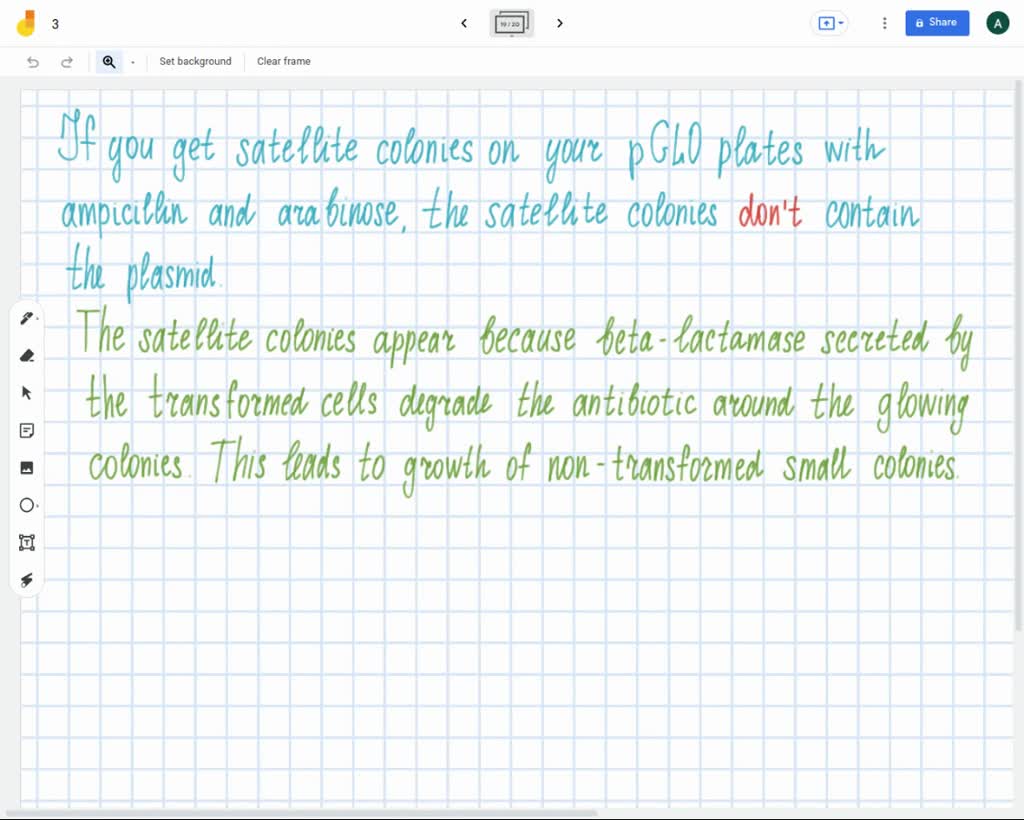 3
19 / 20
Share
A
Set background
Clear frame
If you get satellite colonies on your pGLO plates with
ampicillin and arabinose, the satellite colonies don't contain
the plasmid.
The satellite colonies appear because beta-lactamase secreted by
the transformed cells degrade the antibiotic around the glowing
colonies. This leads to growth of non-transformed small colonies.
T